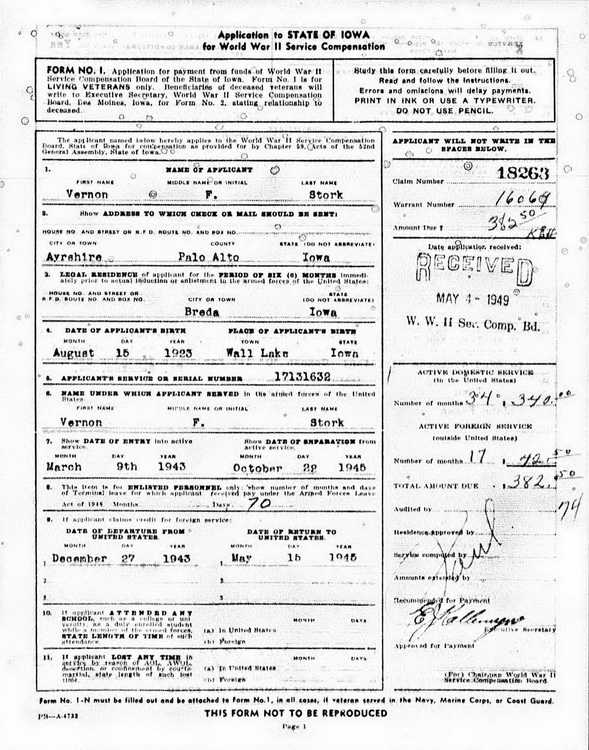 Application to STATE OF IOWA
for World War II Service Compensation
FORM NO. 1. Application for payment from funds of World War II
Service Compensation Board of the State of Iowa. Form No. 1 is for
LIVING VETERANS only. Beneficiaries of deceased veterans will
write to Executive Secretary, World War II Service Compensation
Board, Des Moines, Iowa, for Form No. 2, stating relationship to
deceased.
Study this form carefully before filling it out.
Read and follow the instructions.
Errors and omissions will delay payments.
PRINT IN INK OR USE A TYPEWRITER.
DO NOT USE PENCIL.
The applicant named below hereby applies to the World War II Service Compensation
Board, State of Iowa for compensation as provided for by Chapter 59, Acts of the 52nd
General Assembly, State of Iowa.
1. NAME OF APPLICANT
FIRST NAME MIDDLE NAME OR INITIAL LAST NAME
Vernon F. Stork
2. Show ADDRESS TO WHICH CHECK OR MAIL SHOULD BE SENT:
HOUSE NO. AND STREET OR R.F.D. ROUTE NO. AND BOX NO.
CITY OR TOWN COUNTY STATE (DO NOT ABBREVIATE)
Ayrshire Palo Alto Iowa
3. LEGAL RESIDENCE of applicant for the PERIOD OF SIX (6) MONTHS immedi-
ately prior to actual induction or enlistment in the armed forces of the United States:
HOUSE NO. AND STREET OR
R.F.D. ROUTE NO. AND BOX NO. CITY OR TOWN STATE
(DO NOT ABBREVIATE)
Breda Iowa
4. DATE OF APPLICANT'S BIRTH PLACE OF APPLICANT'S BIRTH
MONTH DAY YEAR TOWN STATE
August 15 1923 Wall Lake Iowa
5. APPLICANT'S SERVICE OR SERIAL NUMBER 17131632
6. NAME UNDER WHICH APPLICANT SERVED in the armed forces of the United
States
FIRST NAME MIDDLE NAME OR INITIAL LAST NAME
Vernon F. Stork
7. Show DATE OF ENTRY into active
service. Show DATE OF SEPARATION from
active service.
MONTH DAY YEAR MONTH DAY YEAR
March 9th 1943 October 29 1945
8. This item is for ENLISTED PERSONNEL only; show number of months and days
of Terminal leave for which applicant received pay under the Armed Forces Leave
Act of 1946. Months Days 70
9. If applicant claims credit for foreign service:
DATE OF DEPARTURE FROM
UNITED STATES DATE OF RETURN TO
UNITED STATES
MONTH DAY YEAR MONTH DAY YEAR
1 December 27 1943 1 May 15 1945
2 2
3 3
10. If applicant ATTENDED ANY
SCHOOL, such as a college or uni-
versity, as a duly enrolled student
while a member of the armed forces,
STATE LENGTH OF TIME of such
attendance.
MONTH DAY
(a) In United States
(b) Foreign
11. If applicant LOST ANY TIME in
service by reason of AOL, AWOL,
desertion, or confinement by courts-
martial, state length of such lost
time.
MONTH DAY
(a) In United States
(b) Foreign
APPLICANT WILL NOT WRITE IN THE
SPACES BELOW.
Claim Number 18263
Warrant Number 16069
Amount Due $ 382.50
Date application received:
RECEIVED
MAY 4 - 1949
W. W. II Sec. Comp. Bd.
ACTIVE DOMESTIC SERVICE
(in the United States)
Number of months 34 $ 340.00
ACTIVE FOREIGN SERVICE
(outside United States)
Number of months 17 $ 42.50
TOTAL AMOUNT DUE $ 382.50
Audited by
Residence approved by
Service computed by
Amounts extended by
Recommended for Payment
Executive Secretary
Approved for Payment
(For) Chairman World War II
Service Compensation Board.
Form No. 1-N must be filled out and be attached to Form No.1, in all cases, if veteran served in the Navy, Marine Corps, or Coast Guard.
PB—A-4732 THIS FORM NOT TO BE REPRODUCED
Page 1